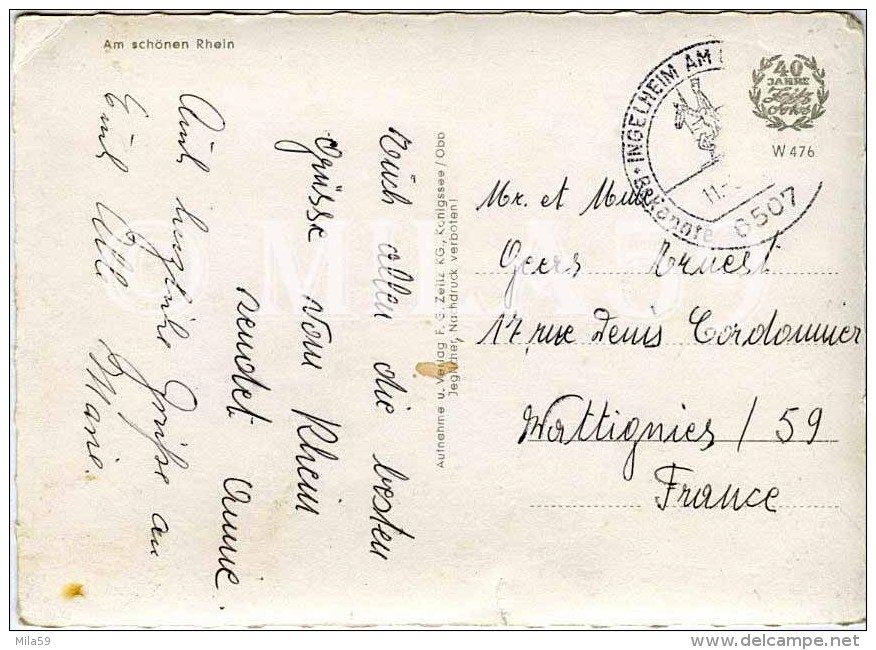 Am schönen Rhein
Euch allen die besten
Grüsse vom Rhein
sendet Annie.
Auch herzliche Grüße an
Emil Marie.
Aufnahme u. Verlag F. G. Zeitz KG., Königssee/Obb
Jeglicher Nachdruck verboten!
INGELHEIM AM
Bekannte
11.
6507
40
JAHRE
Zeitz
W 476
Mr. et Mme
Geers Ernest
17, rue Denis Cordonnier
Wattignies / 59
France
© MILA59
Mila59
www.delcampe.net